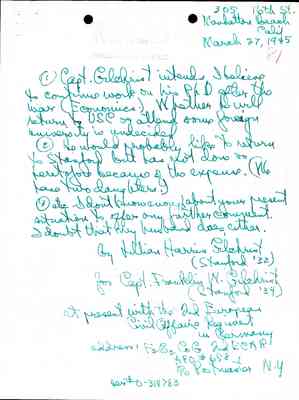 305 15th St.
Manhattan Beach
Calif
March 27, 1945
① Capt. Gilchrist intends, I believe,
to continue work on his PhD after the
war (Economics). Whether he will
return to USC or attend some foreign
university is undecided
② He would probably like to return
to Stanford but has not done so
heretofore because of the expense. (We
have two daughters)
I don't know enough about your present
situation to offer any further comment.
I doubt that my husband does either.
by Lillian Harris Gilchrist
(Stanford '32)
for Capt. Franklin W. Gilchrist
(Stanford '34)
At present with the 2nd European
Civil Affairs Regiment
in Germany
address: Co G
APO # 658
% Postmaster N.Y
ser# O-318783